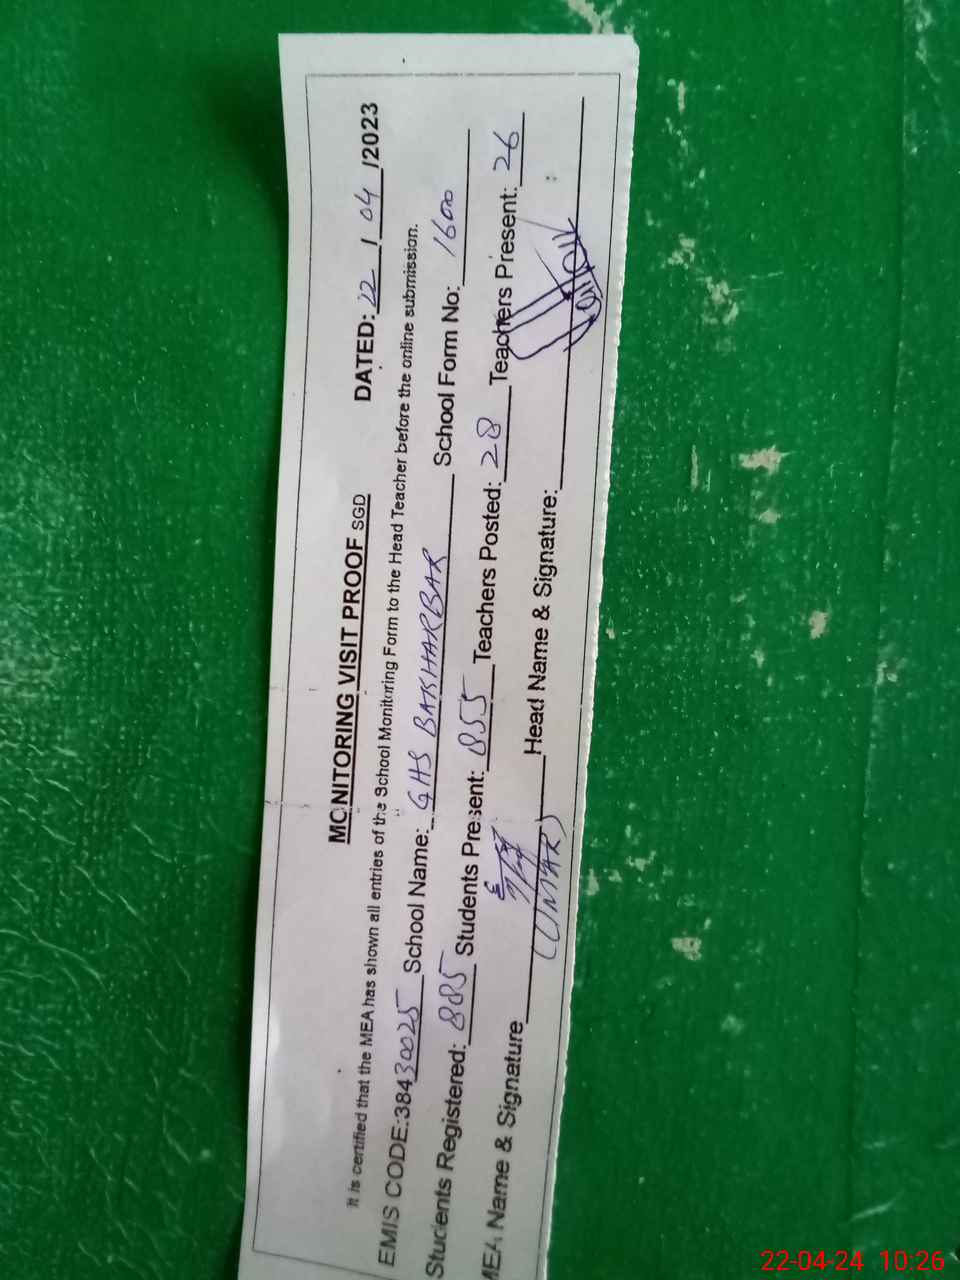 MONITORING VISIT PROOF SGD DATED: 22 / 04 /2023
It is certified that the MEA has shown all entries of the School Monitoring Form to the Head Teacher before the online submission.
EMIS CODE:38430025 School Name: GHS BAKHARBAR School Form No: 1600
Students Registered: 885 Students Present: 855 Teachers Posted: 28 Teachers Present: 26
MEA Name & Signature (UMAR) Head Name & Signature:
22-04-24 10:26